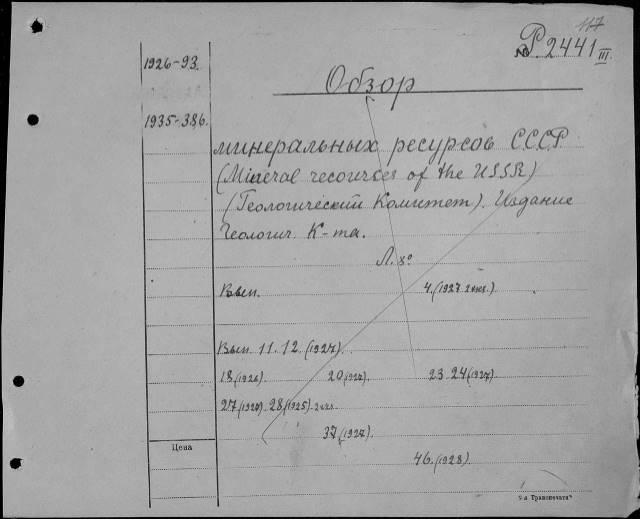 117
№ Р.2441 III.
1926-93.
Обзор
1935-386.
минеральных ресурсов С.С.С.Р.
(Mineral recources of the USSR)
(Геологический Комитет). Издание
Геологич. К-та.
Л. 8°
Вып. 4. (1927 2 экз.)
Вып. 11. 12. (1927).
18 (1926). 20 (1927). 23. 24 (1927)
27 (1927) 28 (1925) 2 экз.
37 (1927).
Цена
46. (1928).
9-я Транспечать